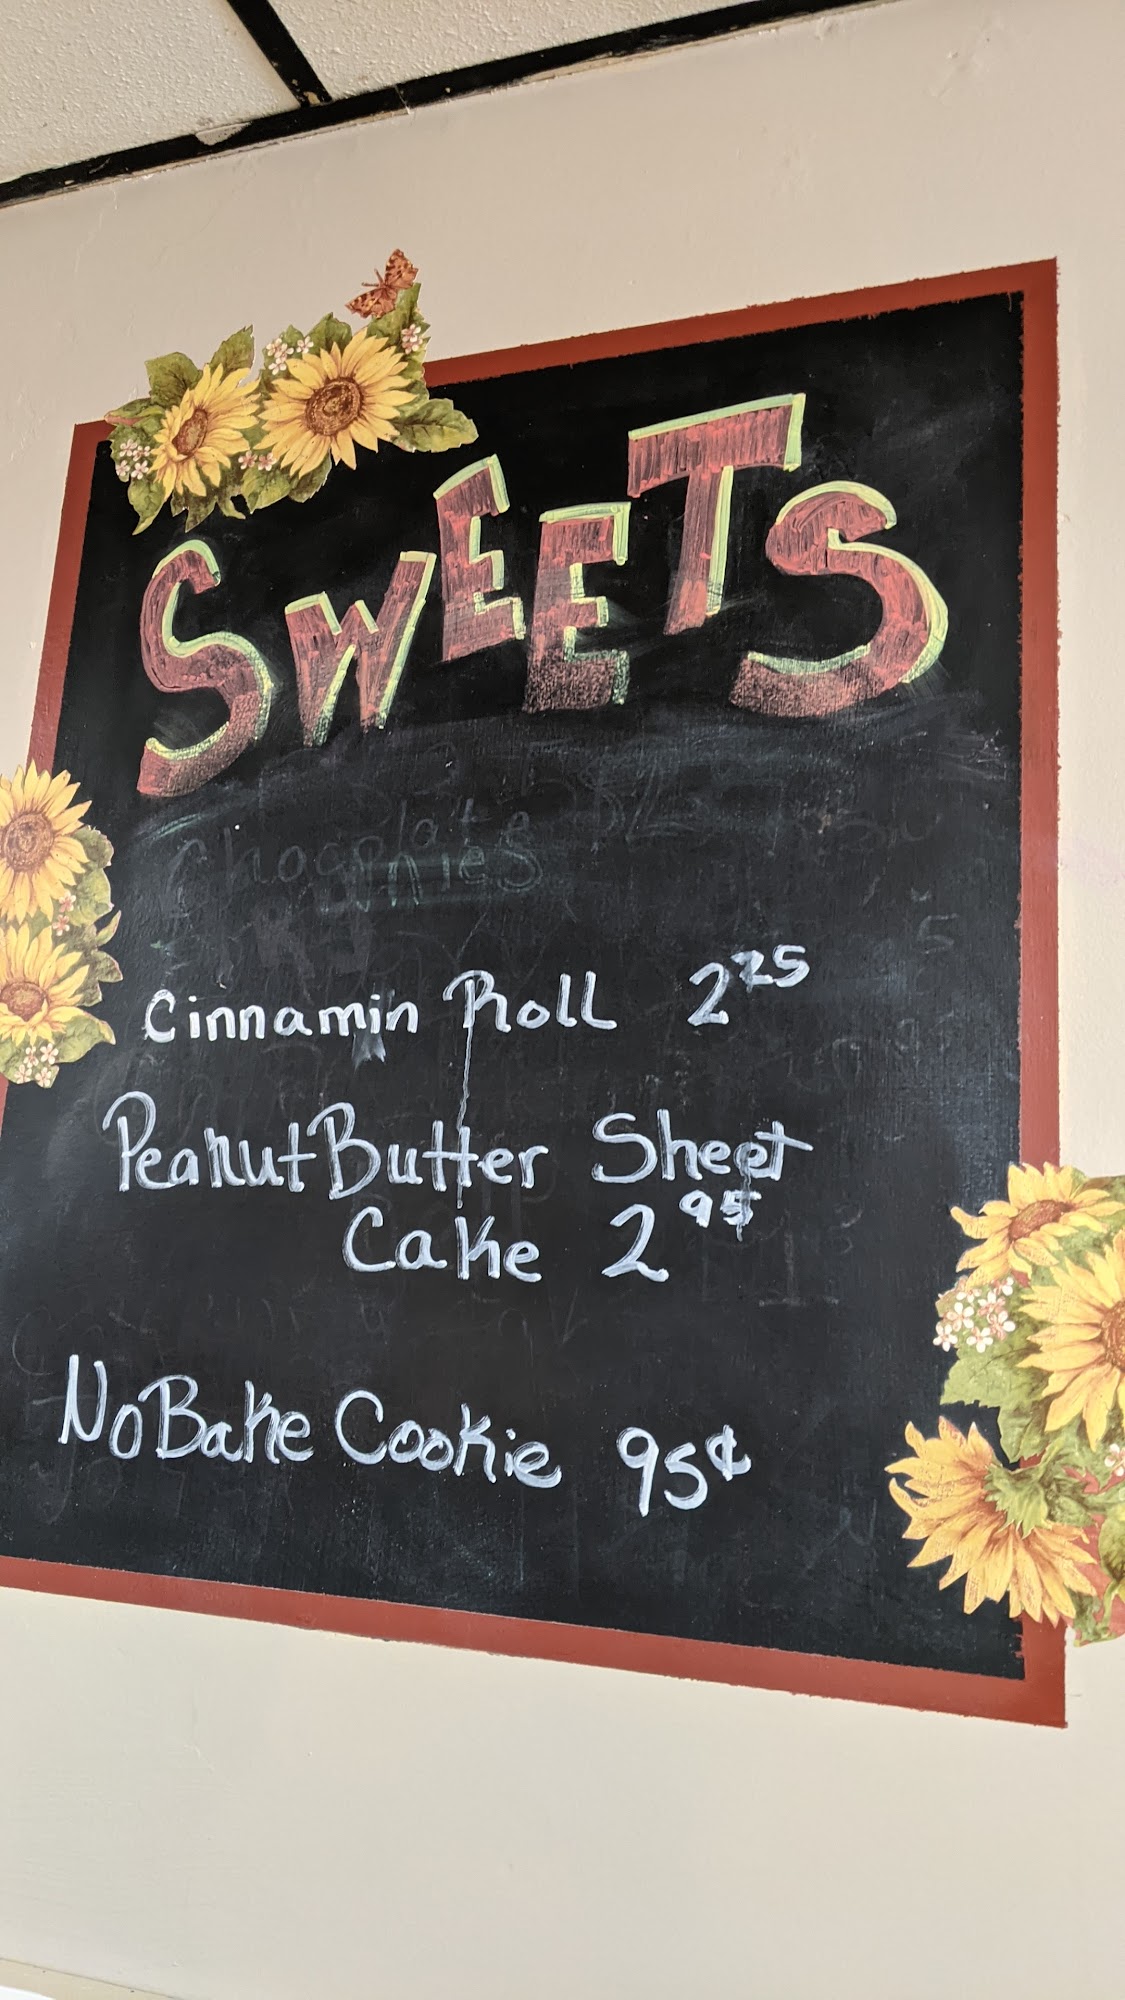 SWEETS
Cinnamin Roll 2.25
Peanut Butter Sheet
Cake 2.95
No Bake Cookie 95¢